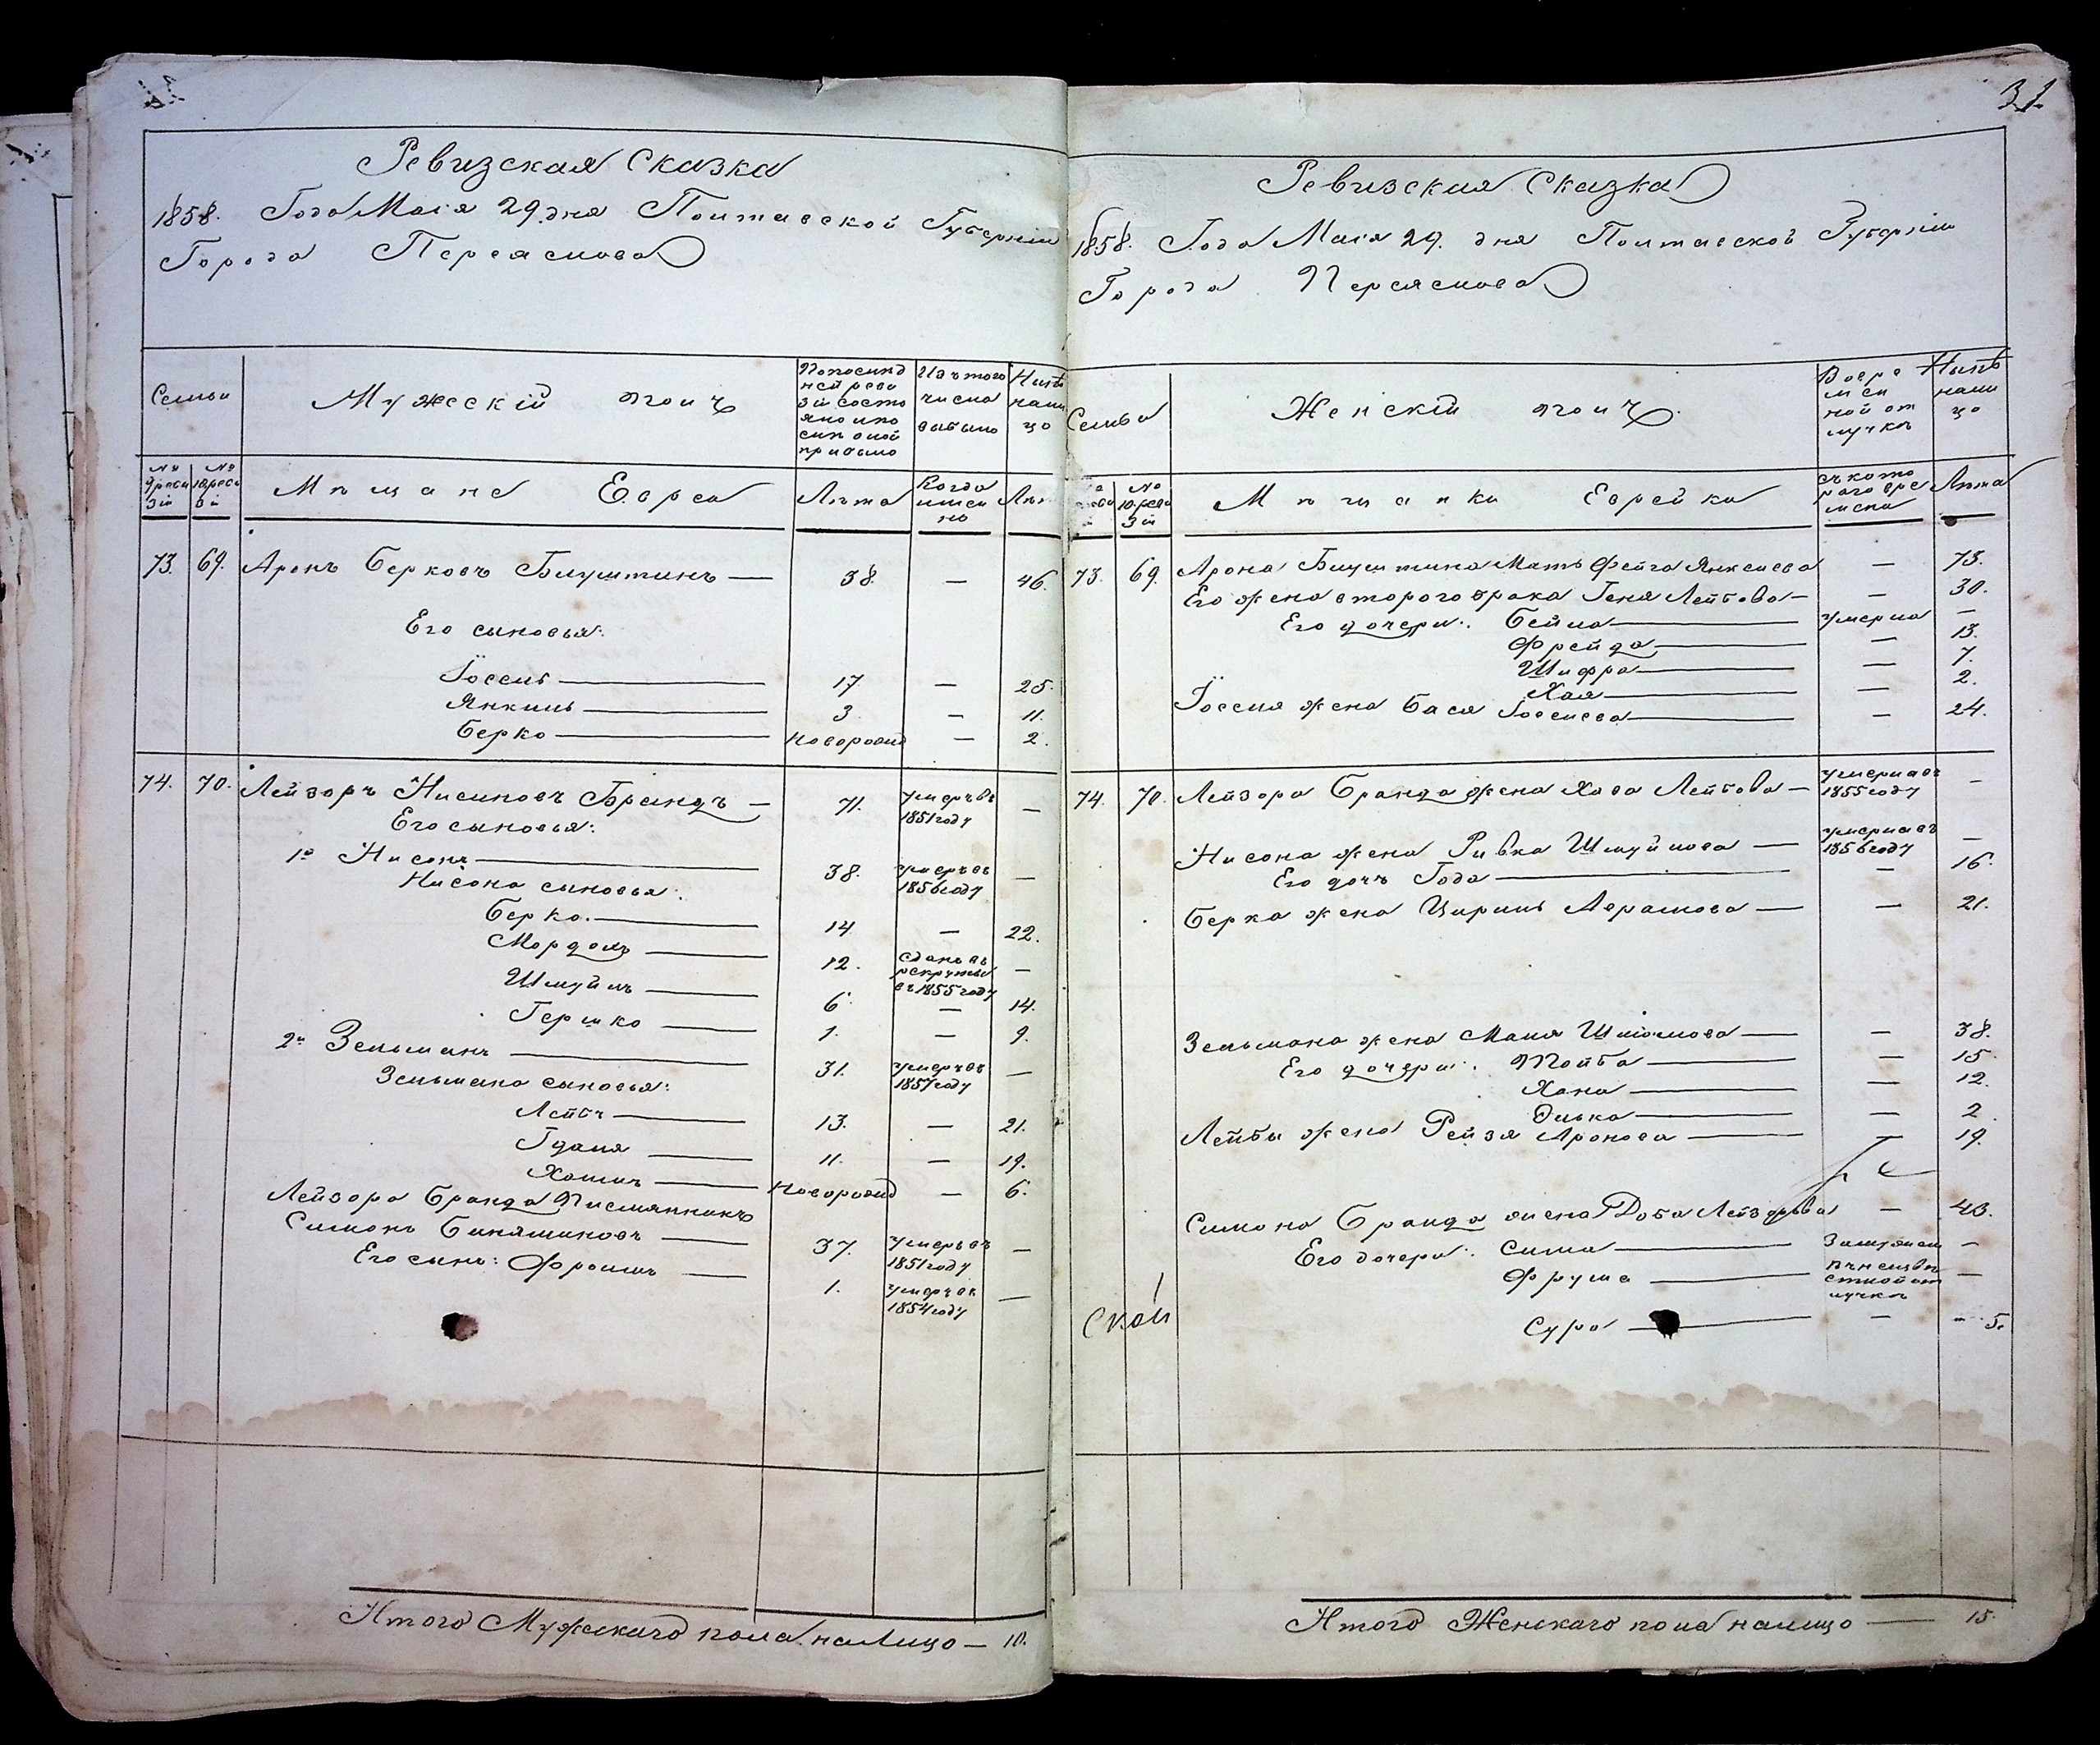 31.
Ревизская Сказка
1858. Года Маія 29. дня Полтавской Губерніи
Города Переяслова
Семьи
Мужескій полъ
По последней ревизіи состояло и после оной прибыло
Изъ того числа выбыло
Ныне на лицо
№ 9 ревизіи
№ 10 ревизіи
Мещане Евреи
Лета
Когда именно
Лета
73. 69. Аронъ Берковъ Блуштинъ — 38. — 46.
Его сыновья:
Іосель — 17 — 25.
Янкиль — 3 — 11.
Берко — новорожд — 2.
74. 70. Лейзоръ Нисиновъ Брандъ — 71. умеръ въ 1851 году —
Его сыновья:
1й Нисонъ — 38. умеръ въ 1856 году —
Нисона сыновья:
Берко. — 14 — 22.
Мордель — 12. сданъ въ рекруты въ 1855 году —
Шмуйль — 6. — 14.
Гершко — 1. — 9.
2й Зельманъ — 31. умеръ въ 1857 году —
Зельмана сыновья:
Лейбъ — 13. — 21.
Гдаля — 11. — 19.
Хаимъ — Новорожд — 6.
Лейзора Бранда Писмянникъ
Симонъ Биняминовъ — 37. умеръ въ 1851 году —
Его сынъ: Фроимъ — 1. умеръ въ 1854 году —
Итого Мужескаго пола налицо — 10.
Ревизская Сказка
1858. Года Маія 29. дня Полтавской Губерніи
Города Переяслова
Семьи
Женскій полъ
Во временной отлучке
Ныне на лицо
№ 10 ревизіи
Мещанки Еврейки
съ котораго времени
Лета
73. 69. Арона Блуштина Мать Фейга Янкелева — 73.
Его жена второго брака Геня Лейбова — — 30.
Его дочери: Бейла — умерла —
Фрейда — — 13.
Шифра — — 7.
Хая — — 2.
Іоселя жена Бася Іоселева — — 24.
74. 70. Лейзора Бранда жена Хава Лейбова — умерла въ 1855 году —
Нисона жена Ривка Шмуйлова — умерла въ 1856 году —
Его дочь Года — — 16.
Берка жена Цирипь Аврамова — — 21.
Зельмана жена Маля Шломова — — 38.
Его дочери: Тойба — — 15.
Хана — — 12.
Элька — — 2.
Лейбы жена Рейзя Аронова — — 19.
Симона Бранда жена Доба Лейзорова — 43.
Его дочери: Сима — Замужем —
Фрума — въ неизвестной отлучке —
Сура — — 5.
Итого Женскаго пола налицо — 15.